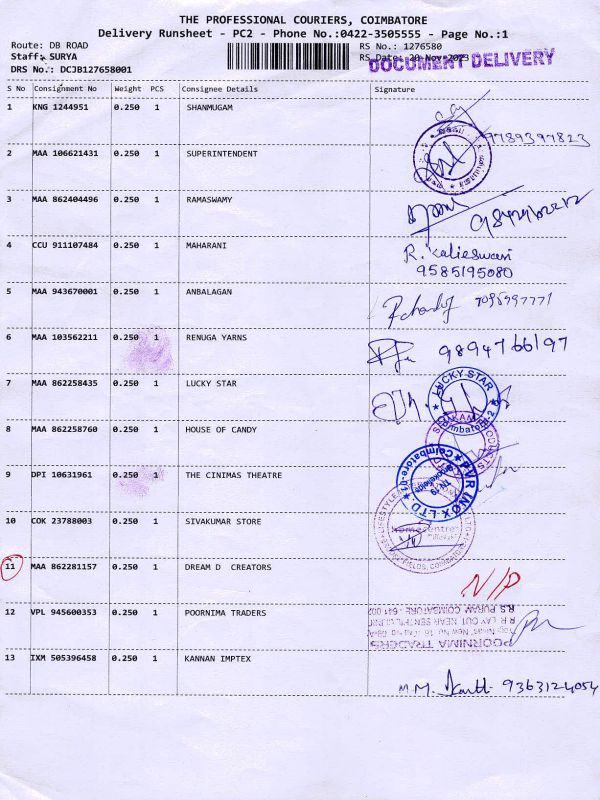 THE PROFESSIONAL COURIERS, COIMBATORE
Delivery Runsheet - PC2 - Phone No.:0422-3505555 - Page No.:1
Route: DB ROAD
RS No.: 1276580
Staff: SURYA
RS Date: 20 Nov 2023
DOCUMENT DELIVERY
DRS No.: DCJB127658001
S No Consignment No Weight PCS Consignee Details Signature
1 KNG 1244951 0.250 1 SHANMUGAM
9789397823
2 MAA 106621431 0.250 1 SUPERINTENDENT
3 MAA 862404496 0.250 1 RAMASWAMY
4 CCU 911107484 0.250 1 MAHARANI R. Kalieswari
9585195080
5 MAA 943670001 0.250 1 ANBALAGAN
6 MAA 103562211 0.250 1 RENUGA YARNS 9894766197
7 MAA 862258435 0.250 1 LUCKY STAR
LUCKY STAR
Coimbatore-2
8 MAA 862258760 0.250 1 HOUSE OF CANDY
9 DPI 10631961 0.250 1 THE CINIMAS THEATRE
PVR INOX LTD.
Coimbatore
10 COK 23788003 0.250 1 SIVAKUMAR STORE
homecentre
11 MAA 862281157 0.250 1 DREAM D CREATORS
N/P
12 VPL 945600353 0.250 1 POORNIMA TRADERS
R.S. PURAM COIMBATORE - 641 002
POORNIMA TRADERS
13 IXM 505396458 0.250 1 KANNAN IMPTEX
9363124054